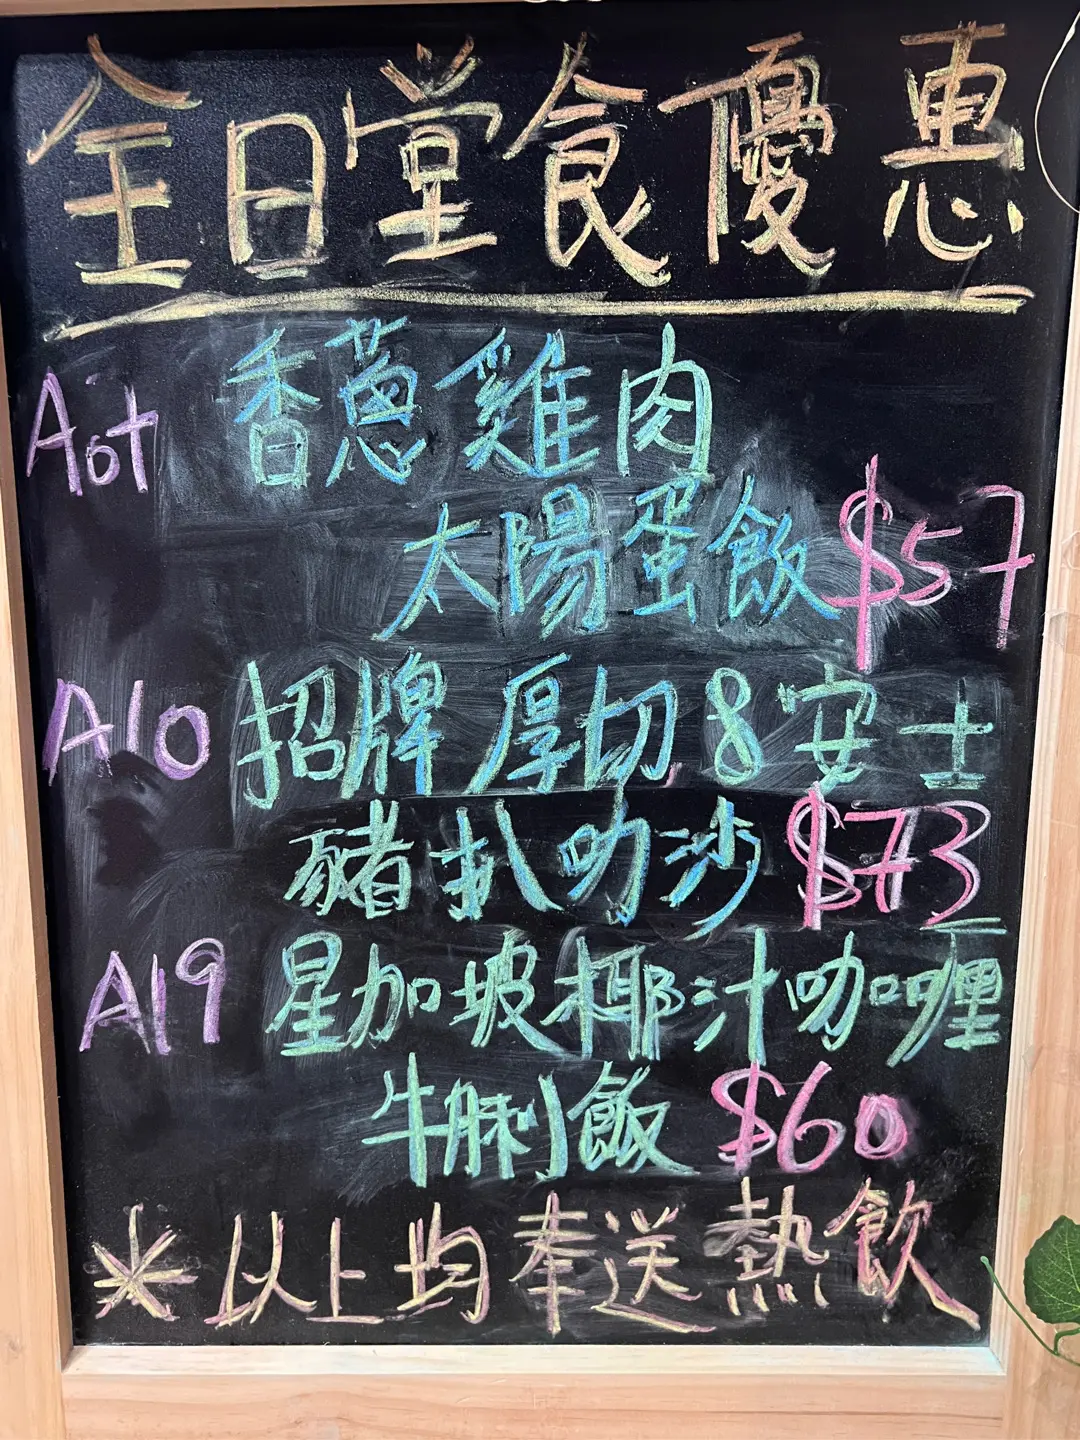 全日堂食優惠
A07 香蔥雞肉
太陽蛋飯 $57
A10 招牌厚切8安士
豬扒叻沙 $73
A19 星加坡椰汁咖喱
牛脷飯 $60
* 以上均奉送熱飲